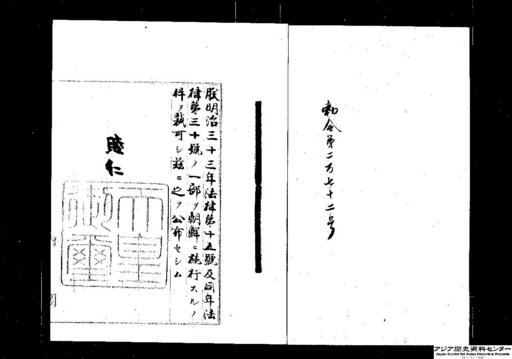 勅令第二百七十二号
朕明治三十三年法律第十五號及同年法
律第三十號ノ一部ヲ朝鮮ニ施行スルノ
件ヲ裁可シ茲ニ之ヲ公布セシム
睦仁
天皇御璽
アジア歴史資料センター
Japan Center for Asian Historical Records